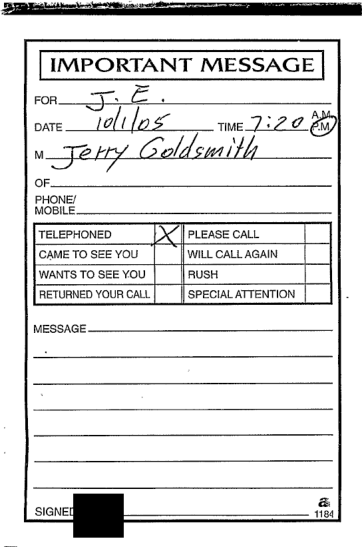 IMPORTANT MESSAGE
FOR J. E.
DATE 10/1/05 TIME 7:20 A.M. P.M.
M Jerry Goldsmith
OF
PHONE/
MOBILE
TELEPHONED X PLEASE CALL
CAME TO SEE YOU WILL CALL AGAIN
WANTS TO SEE YOU RUSH
RETURNED YOUR CALL SPECIAL ATTENTION
MESSAGE
SIGNED
a
1184